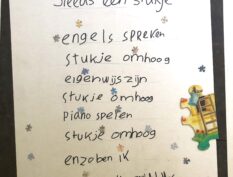 steeds een stukje
engels spreken
stukje omhoog
eigenwijs zijn
stukje omhoog
piano spelen
stukje omhoog
enzoben ik